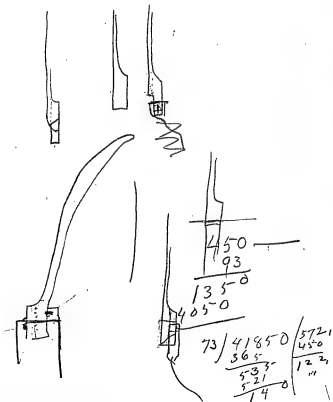 450
93
1350
4050
73 / 41850 / 572
365
535
521
140
450
122